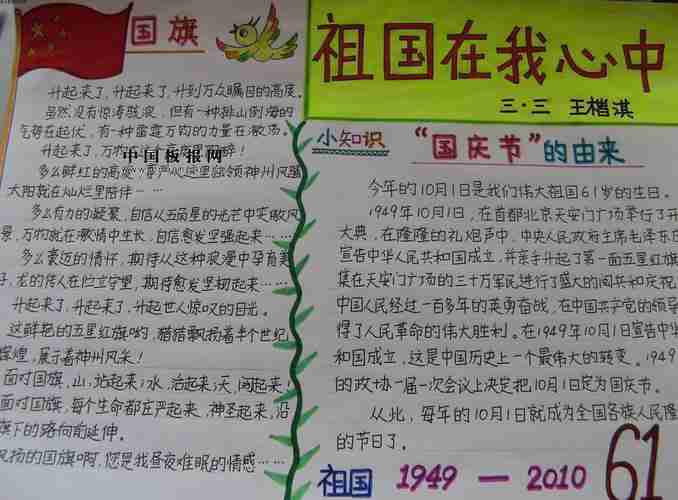 国旗
升起来了,升起来了,升到万众瞩目的高度。
虽然没有惊涛骇浪,但有一种排山倒海的
气势在起伏,有一种雷霆万钧的力量在激荡。
升起来了,万
中国板报网
多么鲜红的
领神州风
太阳我在灿烂里陪伴……
多么有力的凝聚,自信从五星的光芒中笑傲风
景,万物就在激情中生长,自信愈发坚强起来……
多么豪迈的情怀,期待从这种浪漫中孕育美
好,龙的传人在伫立守望,期待愈发坚韧起来……
升起来了,升起来了,升起世人惊叹的目光。
这鲜艳的五星红旗哟,猎猎飘扬着半个世纪
辉煌,展示着神州风采!
面对国旗,山,站起来;水,活起来;天,阔起来!
面对国旗,每个生命都庄严起来,神圣起来,沿
旗下的路向前延伸。
风扬的国旗啊,您是我昼夜难眠的情感……
祖国在我心中
三·三 王楷淇
小知识 “国庆节”的由来
今年的10月1日是我们伟大祖国61岁的生日。
1949年10月1日,在首都北京天安门广场举行了开
大典,在隆隆的礼炮声中,中央人民政府主席毛泽东庄
宣告中华人民共和国成立,并亲手升起了第一面五星红旗
集在天安门广场的三十万军民进行了盛大的阅兵和庆祝
中国人民经过一百多年的英勇奋战,在中国共产党的领导
得了人民革命的伟大胜利。在1949年10月1日宣告中华
和国成立,这是中国历史上一个最伟大的转变。1949
的政协一届一次会议上决定把10月1日定为国庆节。
从此,每年的10月1日就成为全国各族人民隆
的节日了。
祖国 1949 — 2010 61